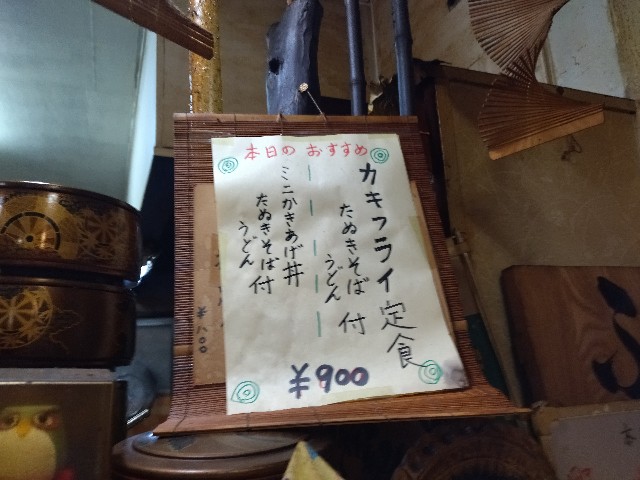 本日のおすすめ
カキフライ定食
たぬきそば付
うどん
ミニかきあげ丼
たぬきそば付
うどん
¥900